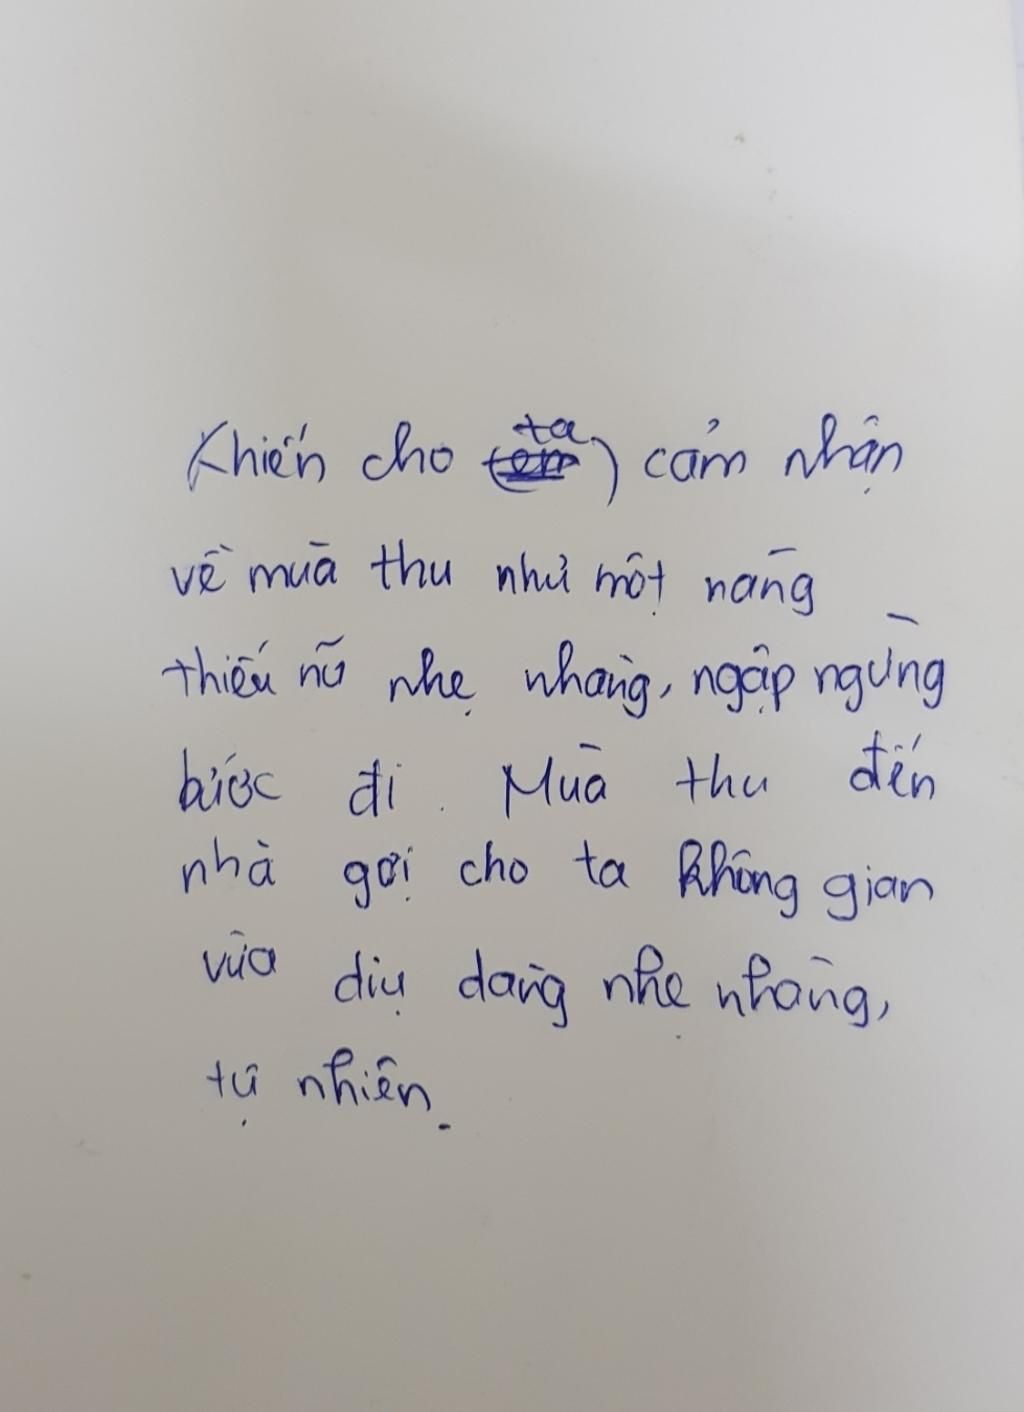 Khiến cho (ta) cảm nhận
về mùa thu như một nàng
thiếu nữ nhẹ nhàng, ngập ngừng
bước đi. Mùa thu đến
nhà gợi cho ta không gian
vừa dịu dàng nhẹ nhàng,
tự nhiên.